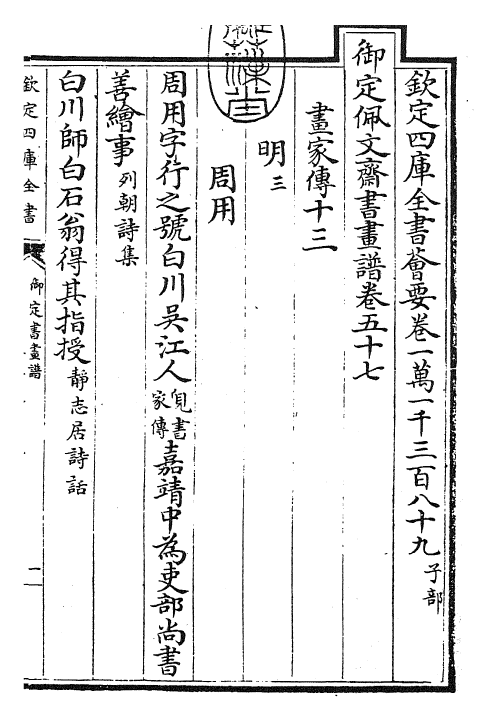 欽定四庫全書薈要卷一萬一千三百八十九子部
御定佩文齋書畫譜卷五十七
畫家傳十三
明三
周用
周用字行之號白川吳江人見書家傳嘉靖中為吏部尚書
善繪事列朝詩集
白川師白石翁得其指授靜志居詩話
欽定四庫全書
御定書畫譜
一